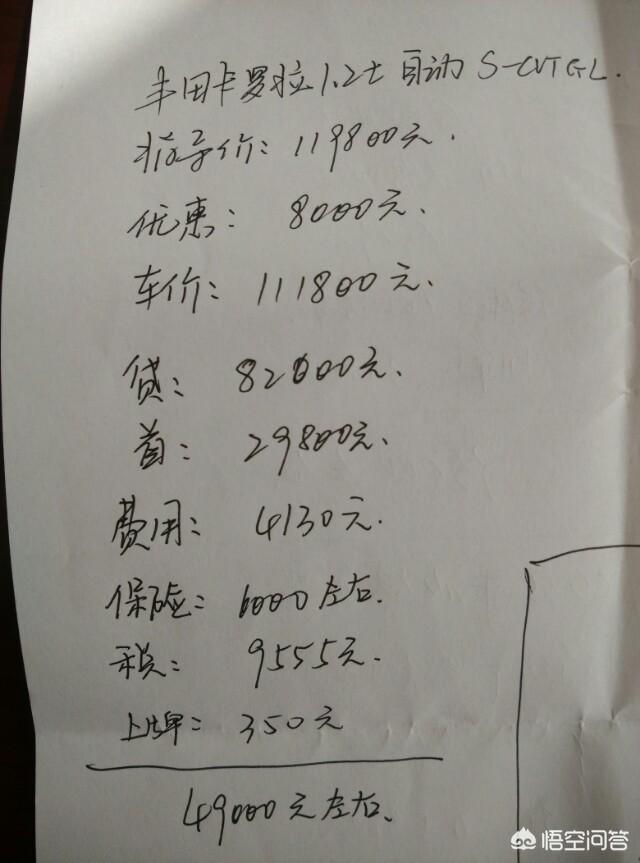 丰田卡罗拉1.2t 自动 S-CVT GL.
指导价: 119800元.
优惠: 8000元.
车价: 111800元.
贷: 82000元.
首: 29800元.
费用: 4130元.
保险: 6000左右.
税: 9555元.
上牌: 350元
49000元左右.
悟空问答